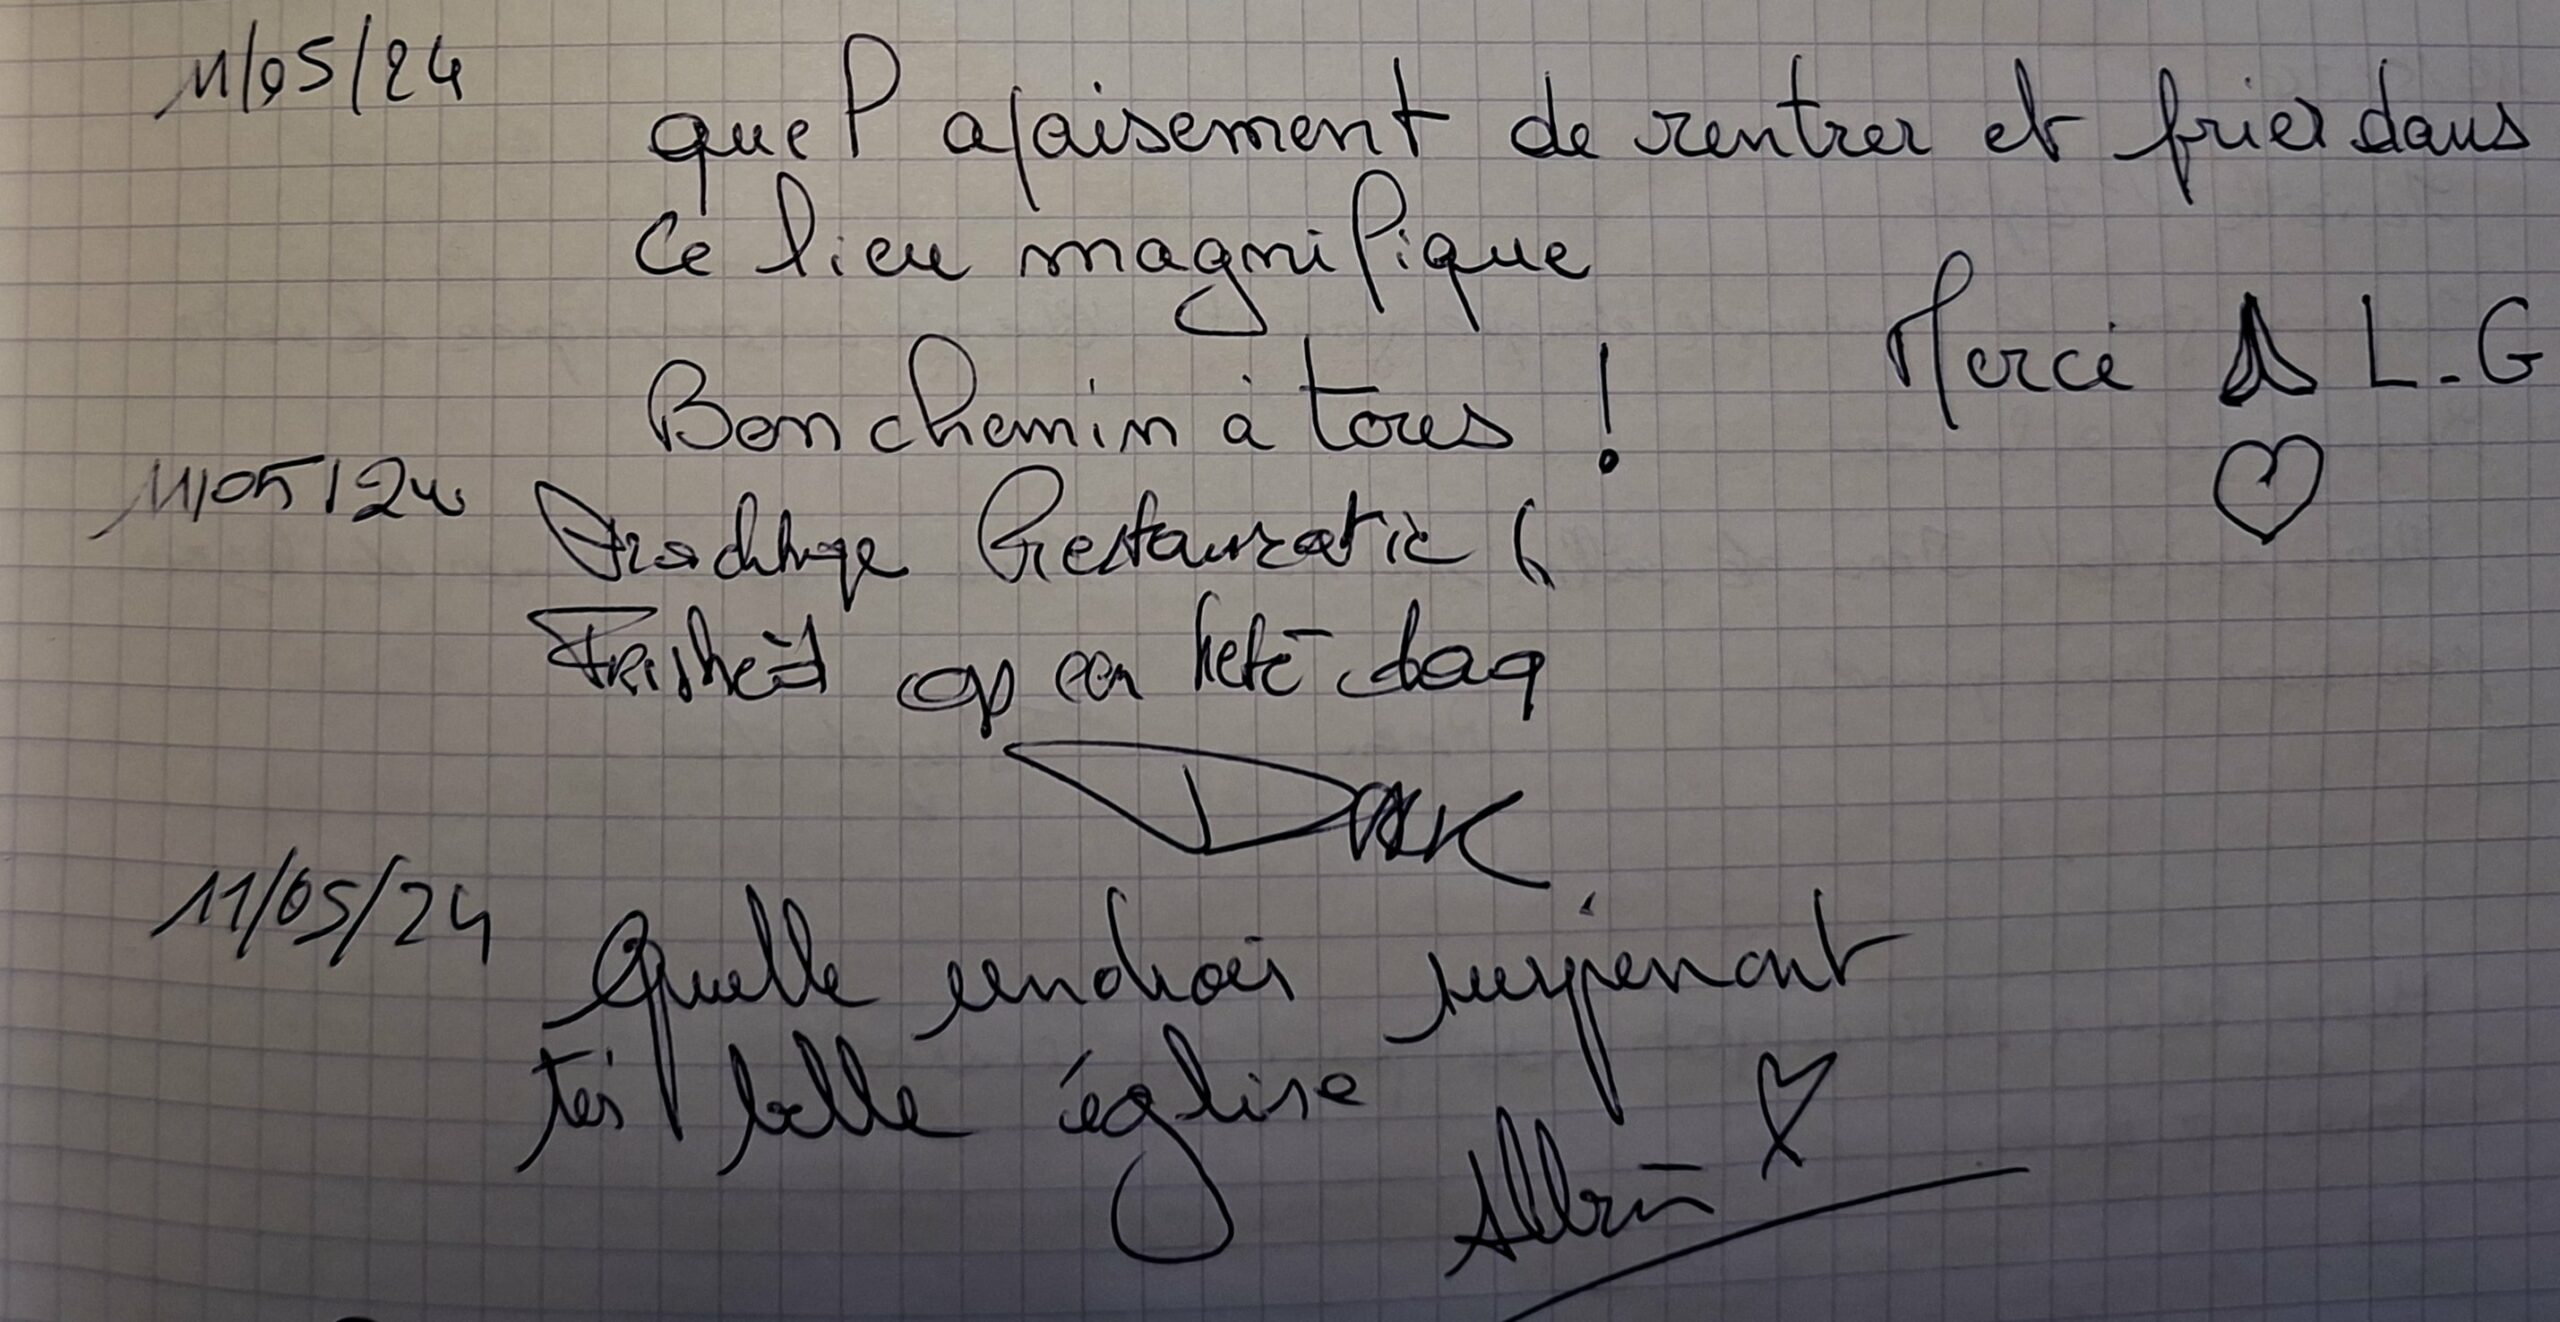 11/05/24
quel apaisement de rentrer et prier dans
ce lieu magnifique
Merci L-G
Bon chemin à tous !
11/05/24
Prachtige Restauratie
Frisheid op een hete dag
Dirk
11/05/24
Quelle endrois surpenant
très belle église